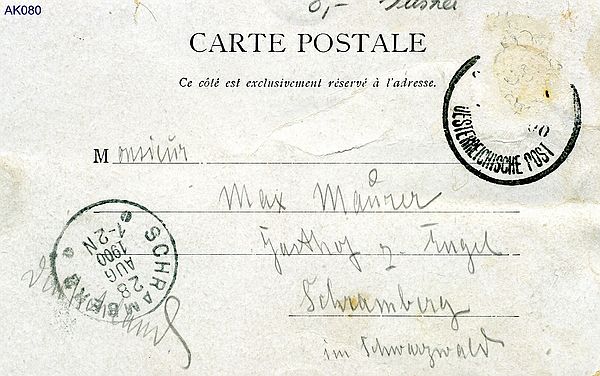 AK080
CARTE POSTALE
Ce côté est exclusivement réservé à l'adresse.
OESTERREICHISCHE POST
Monsieur
Max Maurer
Gasthof z. Engel
Schramberg
im Schwarzwald
Deutschland
SCHRAMBERG
28
AUG
1900
7-2N